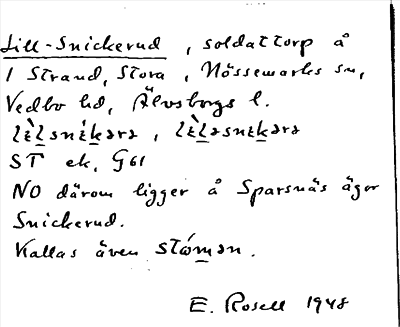 Lill-Snickerud, soldattorp å
1 Strand, Stora, Nössemarks sn,
Vedbo hd, Älvsborgs l.
ST ek, G61
NO därom ligger å Sparsnäs ägor
Snickerud.
Kallas även
E. Rosell 1948